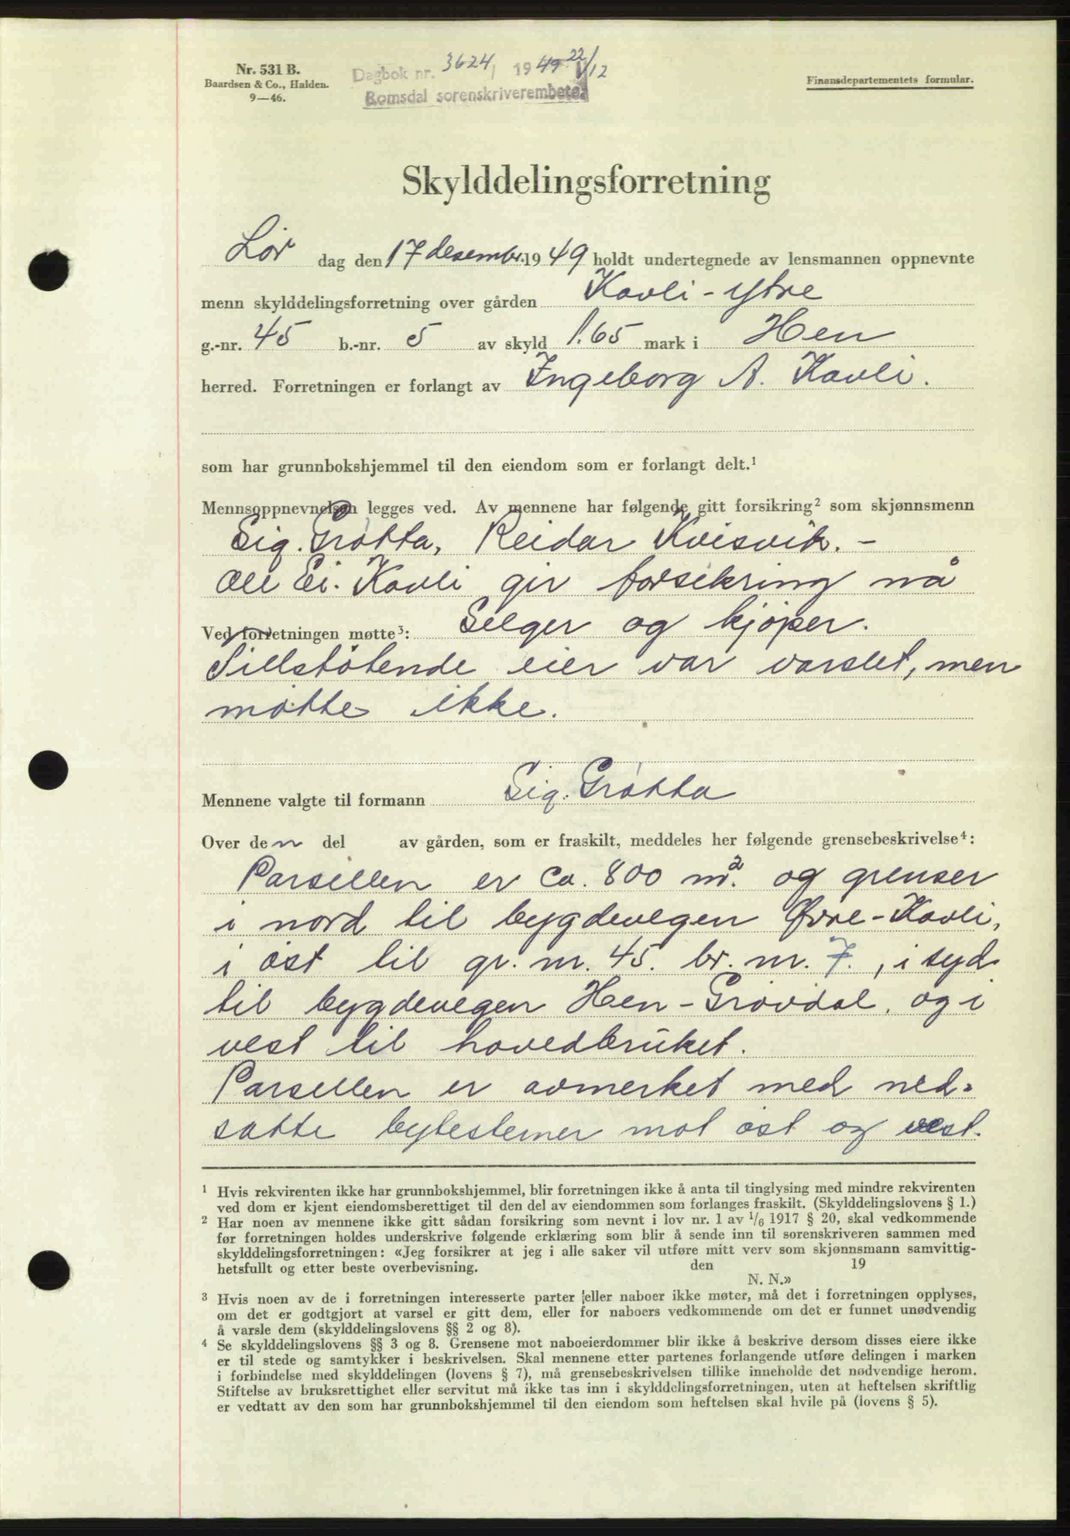 Nr. 531 B.
Baardsen & Co., Halden.
9—46.
Dagbok nr. 3624, 1949 22/12
Romsdal sorenskriverembete
Finansdepartementets formular.
Skylddelingsforretning
Lør dag den 17 desembr. 1949 holdt undertegnede av lensmannen oppnevnte
menn skylddelingsforretning over gården Kavli - ytre
g.-nr. 45 b.-nr. 5 av skyld 1.65 mark i Hen
herred. Forretningen er forlangt av Ingeborg A. Kavli.
som har grunnbokshjemmel til den eiendom som er forlangt delt.¹
Mennsoppnevnelsen legges ved. Av mennene har følgende gitt forsikring² som skjønnsmenn
Sig. Grøtta, Reidar Kvisvik. -
Ole Ei. Kavli gir forsikring nå
Ved forretningen møtte³: Selger og kjøper.
Tillstøtende eier var varslet, men
møtte ikke.
Mennene valgte til formann Sig. Grøtta
Over den del av gården, som er fraskilt, meddeles her følgende grensebeskrivelse⁴:
Parsellen er ca. 800 m². og grenser
i nord til bygdevegen Øvre-Kavli,
i øst til gr. nr. 45. br. nr. 7., i syd
til bygdevegen Hen - Grøvdal, og i
vest til hovedbruket.
Parsellen er avmerket med ned-
satte bytesteiner mot øst og vest.
¹ Hvis rekvirenten ikke har grunnbokshjemmel, blir forretningen ikke å anta til tinglysing med mindre rekvirenten
ved dom er kjent eiendomsberettiget til den del av eiendommen som forlanges fraskilt. (Skylddelingslovens § 1.)
² Har noen av mennene ikke gitt sådan forsikring som nevnt i lov nr. 1 av 1/6 1917 § 20, skal vedkommende
før forretningen holdes underskrive følgende erklæring som blir å sende inn til sorenskriveren sammen med
skylddelingsforretningen: «Jeg forsikrer at jeg i alle saker vil utføre mitt verv som skjønnsmann samvittig-
hetsfullt og etter beste overbevisning. den 19
N. N.»
³ Hvis noen av de i forretningen interesserte parter eller naboer ikke møter, må det i forretningen opplyses,
om det er godtgjort at varsel er gitt dem, eller for naboers vedkommende om det er funnet unødvendig
å varsle dem (skylddelingslovens §§ 2 og 8).
⁴ Se skylddelingslovens §§ 3 og 8. Grensene mot naboeierdommer blir ikke å beskrive dersom disses eiere ikke
er til stede og samtykker i beskrivelsen. Skal mennene etter partenes forlangende utføre delingen i marken
i forbindelse med skylddelingen (lovens § 7), må grensebeskrivelsen tillike inneholde det nødvendige herom.
Stiftelse av bruksrettighet eller servitut må ikke tas inn i skylddelingsforretningen, uten at heftelsen skriftlig
er vedtatt av den som har grunnbokshjemmel til den eiendom som heftelsen skal hvile på (lovens § 5).